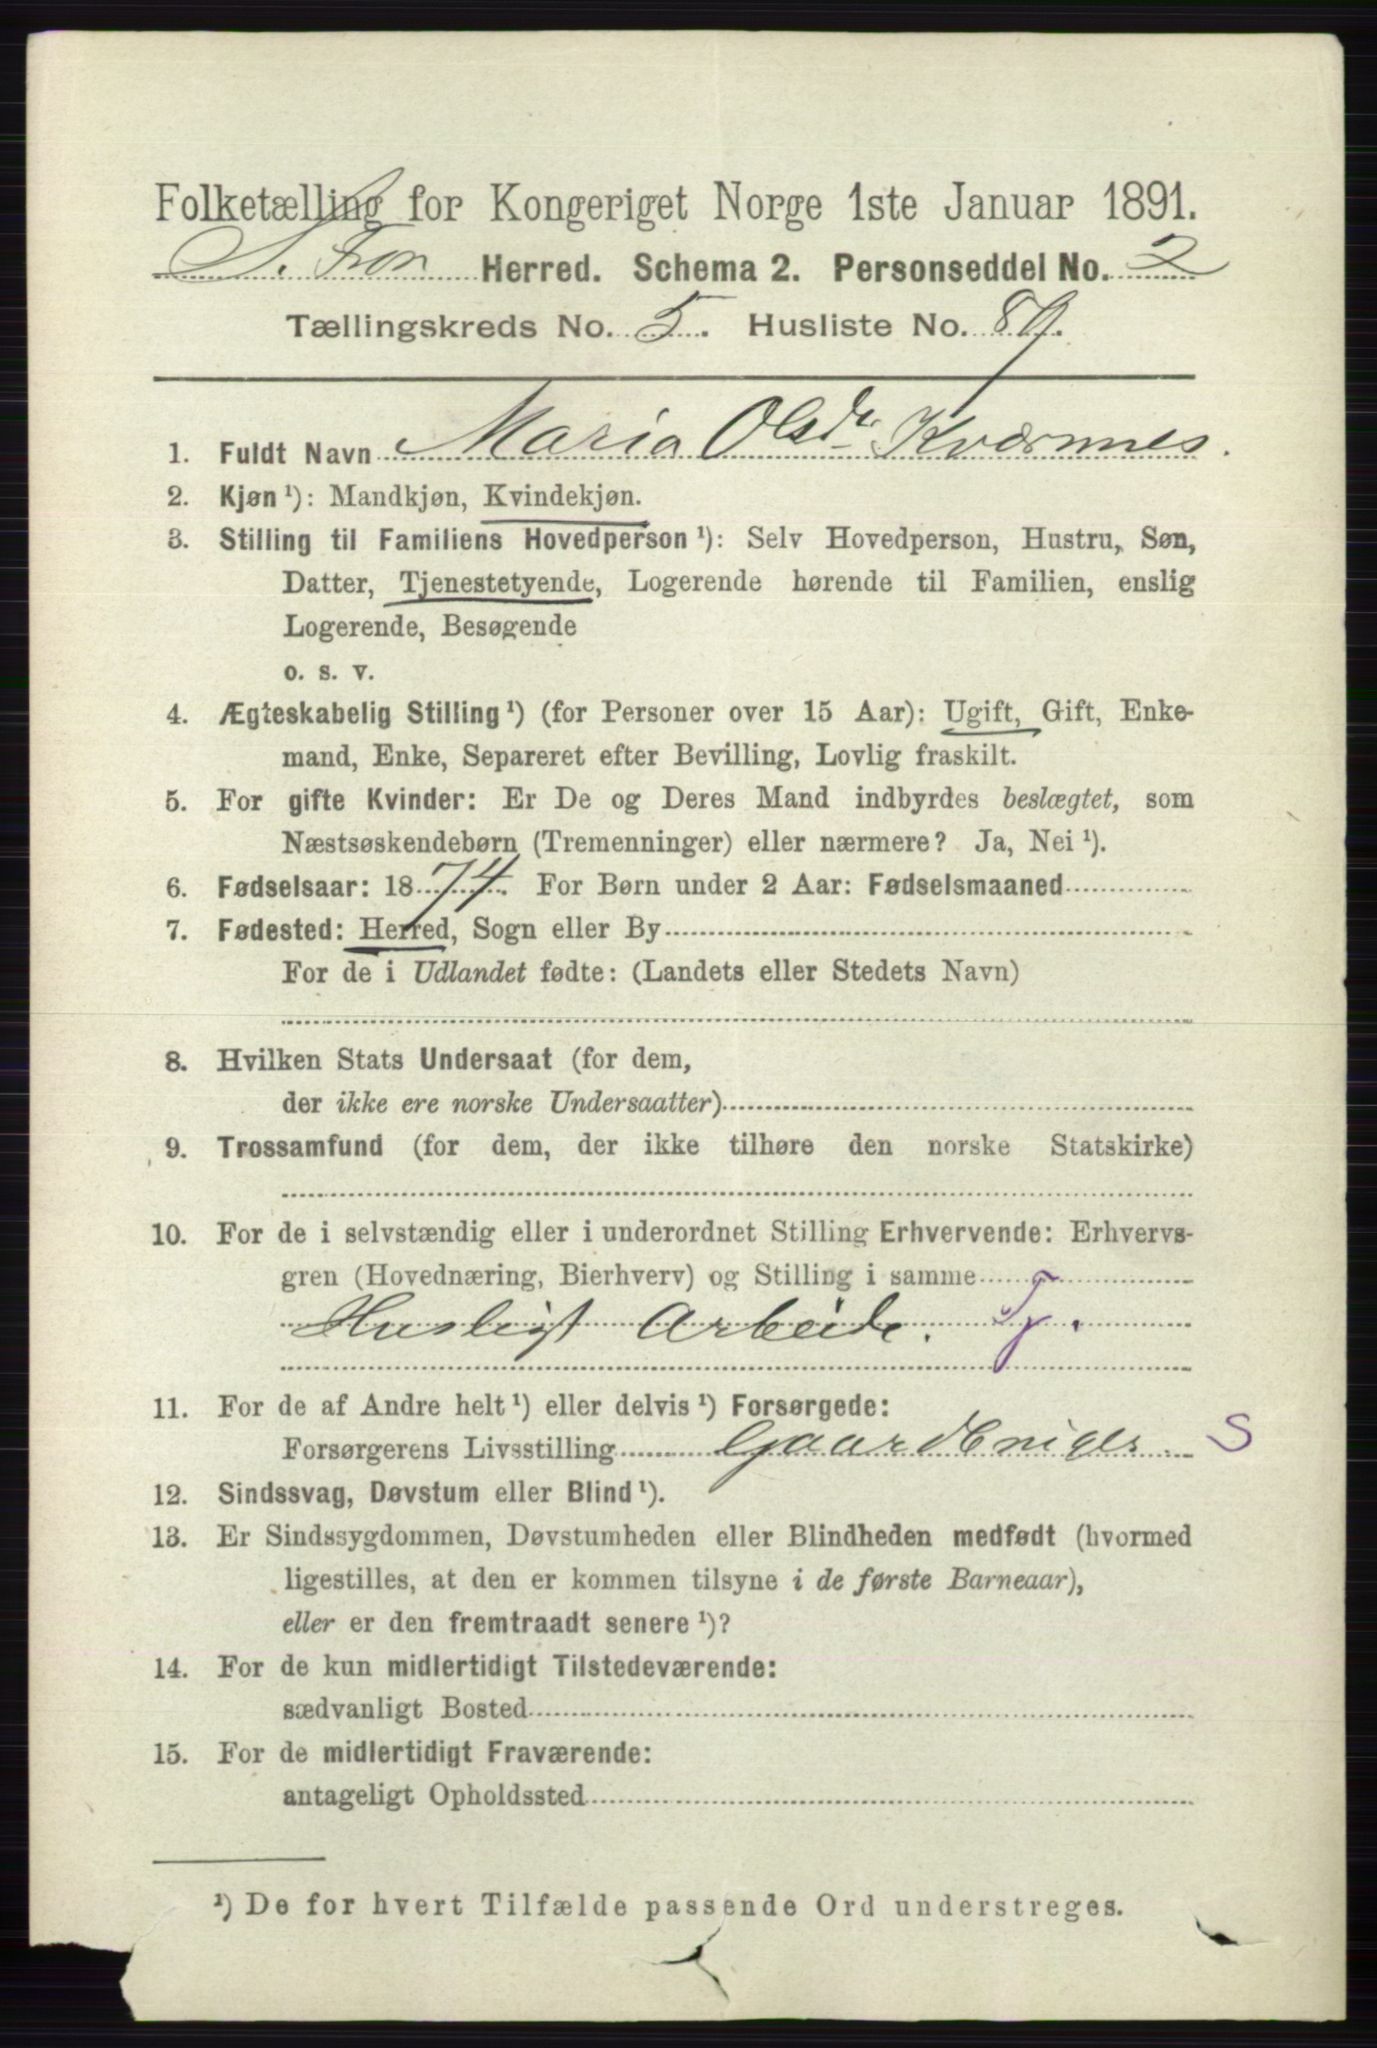 Folketælling for Kongeriget Norge 1ste Januar 1891.
S. Fron Herred. Schema 2. Personseddel No. 2
Tællingskreds No. 5. Husliste No. 89.
1. Fuldt Navn Maria Olsdr. Kværnnes.
2. Kjøn ¹): Mandkjøn, Kvindekjøn.
3. Stilling til Familiens Hovedperson ¹): Selv Hovedperson, Hustru, Søn,
Datter, Tjenestetyende, Logerende hørende til Familien, enslig
Logerende, Besøgende
o. s. v.
4. Ægteskabelig Stilling ¹) (for Personer over 15 Aar): Ugift, Gift, Enke-
mand, Enke, Separeret efter Bevilling, Lovlig fraskilt.
5. For gifte Kvinder: Er De og Deres Mand indbyrdes beslægtet, som
Næstsøskendebørn (Tremenninger) eller nærmere? Ja, Nei ¹).
6. Fødselsaar: 1874. For Børn under 2 Aar: Fødselsmaaned
7. Fødested: Herred, Sogn eller By
For de i Udlandet fødte: (Landets eller Stedets Navn)
8. Hvilken Stats Undersaat (for dem,
der ikke ere norske Undersaatter)
9. Trossamfund (for dem, der ikke tilhøre den norske Statskirke)
10. For de i selvstændig eller i underordnet Stilling Erhvervende: Erhvervs-
gren (Hovednæring, Bierhverv) og Stilling i samme
Husligt Arbeide. Tj.
11. For de af Andre helt ¹) eller delvis ¹) Forsørgede:
Forsørgerens Livsstilling Gaardbruger. S
12. Sindssvag, Døvstum eller Blind ¹).
13. Er Sindssygdommen, Døvstumheden eller Blindheden medfødt (hvormed
ligestilles, at den er kommen tilsyne i de første Barneaar),
eller er den fremtraadt senere ¹)?
14. For de kun midlertidigt Tilstedeværende:
sædvanligt Bosted
15. For de midlertidigt Fraværende:
antageligt Opholdssted
¹) De for hvert Tilfælde passende Ord understreges.